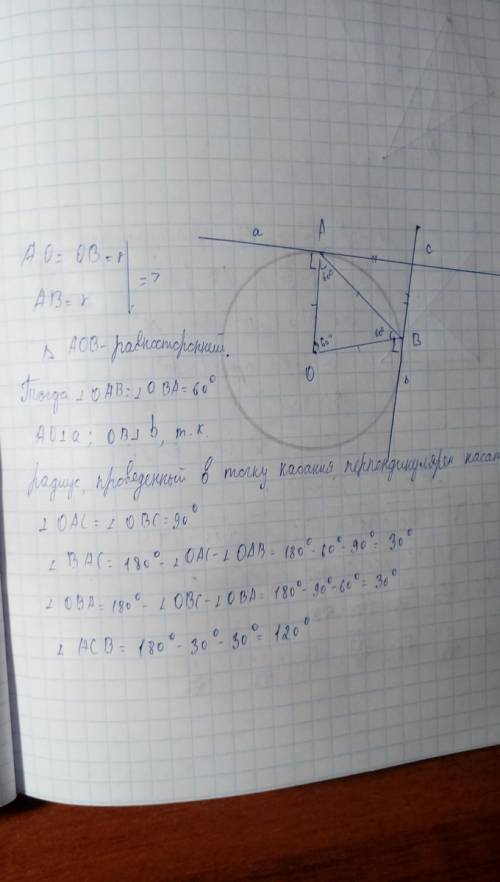 a A c
AO = OB = r
AB = r
=>
60°
60° 60° B
O b
Δ AOB - равносторонний.
Тогда ∠OAB = ∠OBA = 60°
AO⊥a; OB⊥b, т.к.
радиус, проведенный в точку касания, перпендикулярен касат
∠OAC = ∠OBC = 90°
∠BAC = 180° - ∠OAC - ∠OAB = 180° - 60° - 90° = 30°
∠OBA = 180° - ∠OBC - ∠OBA = 180° - 90° - 60° = 30°
∠ACB = 180° - 30° - 30° = 120°